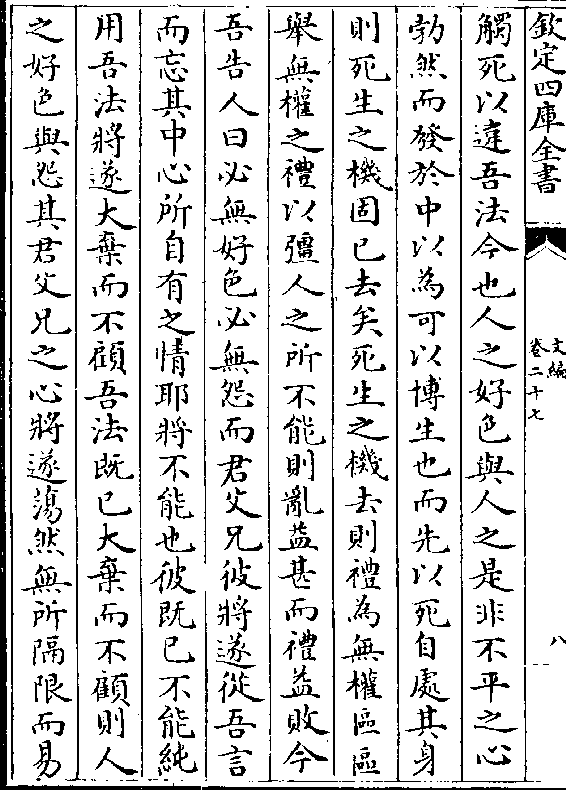 欽定四庫全書
文編
卷二十七
八
觸死以違吾法今也人之好色與人之是非不平之心
勃然而發於中以為可以博生也而先以死自處其身
則死生之機固已去矣死生之機去則禮為無權區區
舉無權之禮以彊人之所不能則亂益甚而禮益敗今
吾告人曰必無好色必無怨而君父兄彼將遂從吾言
而忘其中心所自有之情耶將不能也彼既已不能純
用吾法將遂大棄而不顧吾法既已大棄而不顧則人
之好色與怨其君父兄之心將遂蕩然無所隔限而易